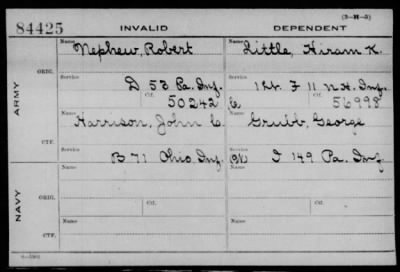 (3-H-3)
84425 INVALID DEPENDENT
Name Name
Nephew, Robert Little, Hiram K.
ARMY
ORIG.
Service Service
D 53 Pa. Inf. 1 Lt. F 11 N.H. Inf.
Ctf. Ctf.
50242 56998
CTF.
Name Name
Harrison, John C. Grubb, George
Service Service
B 71 Ohio Inf. I 149 Pa. Inf.
NAVY
ORIG.
Name Ctf. Name Ctf.
CTF.
Name Name